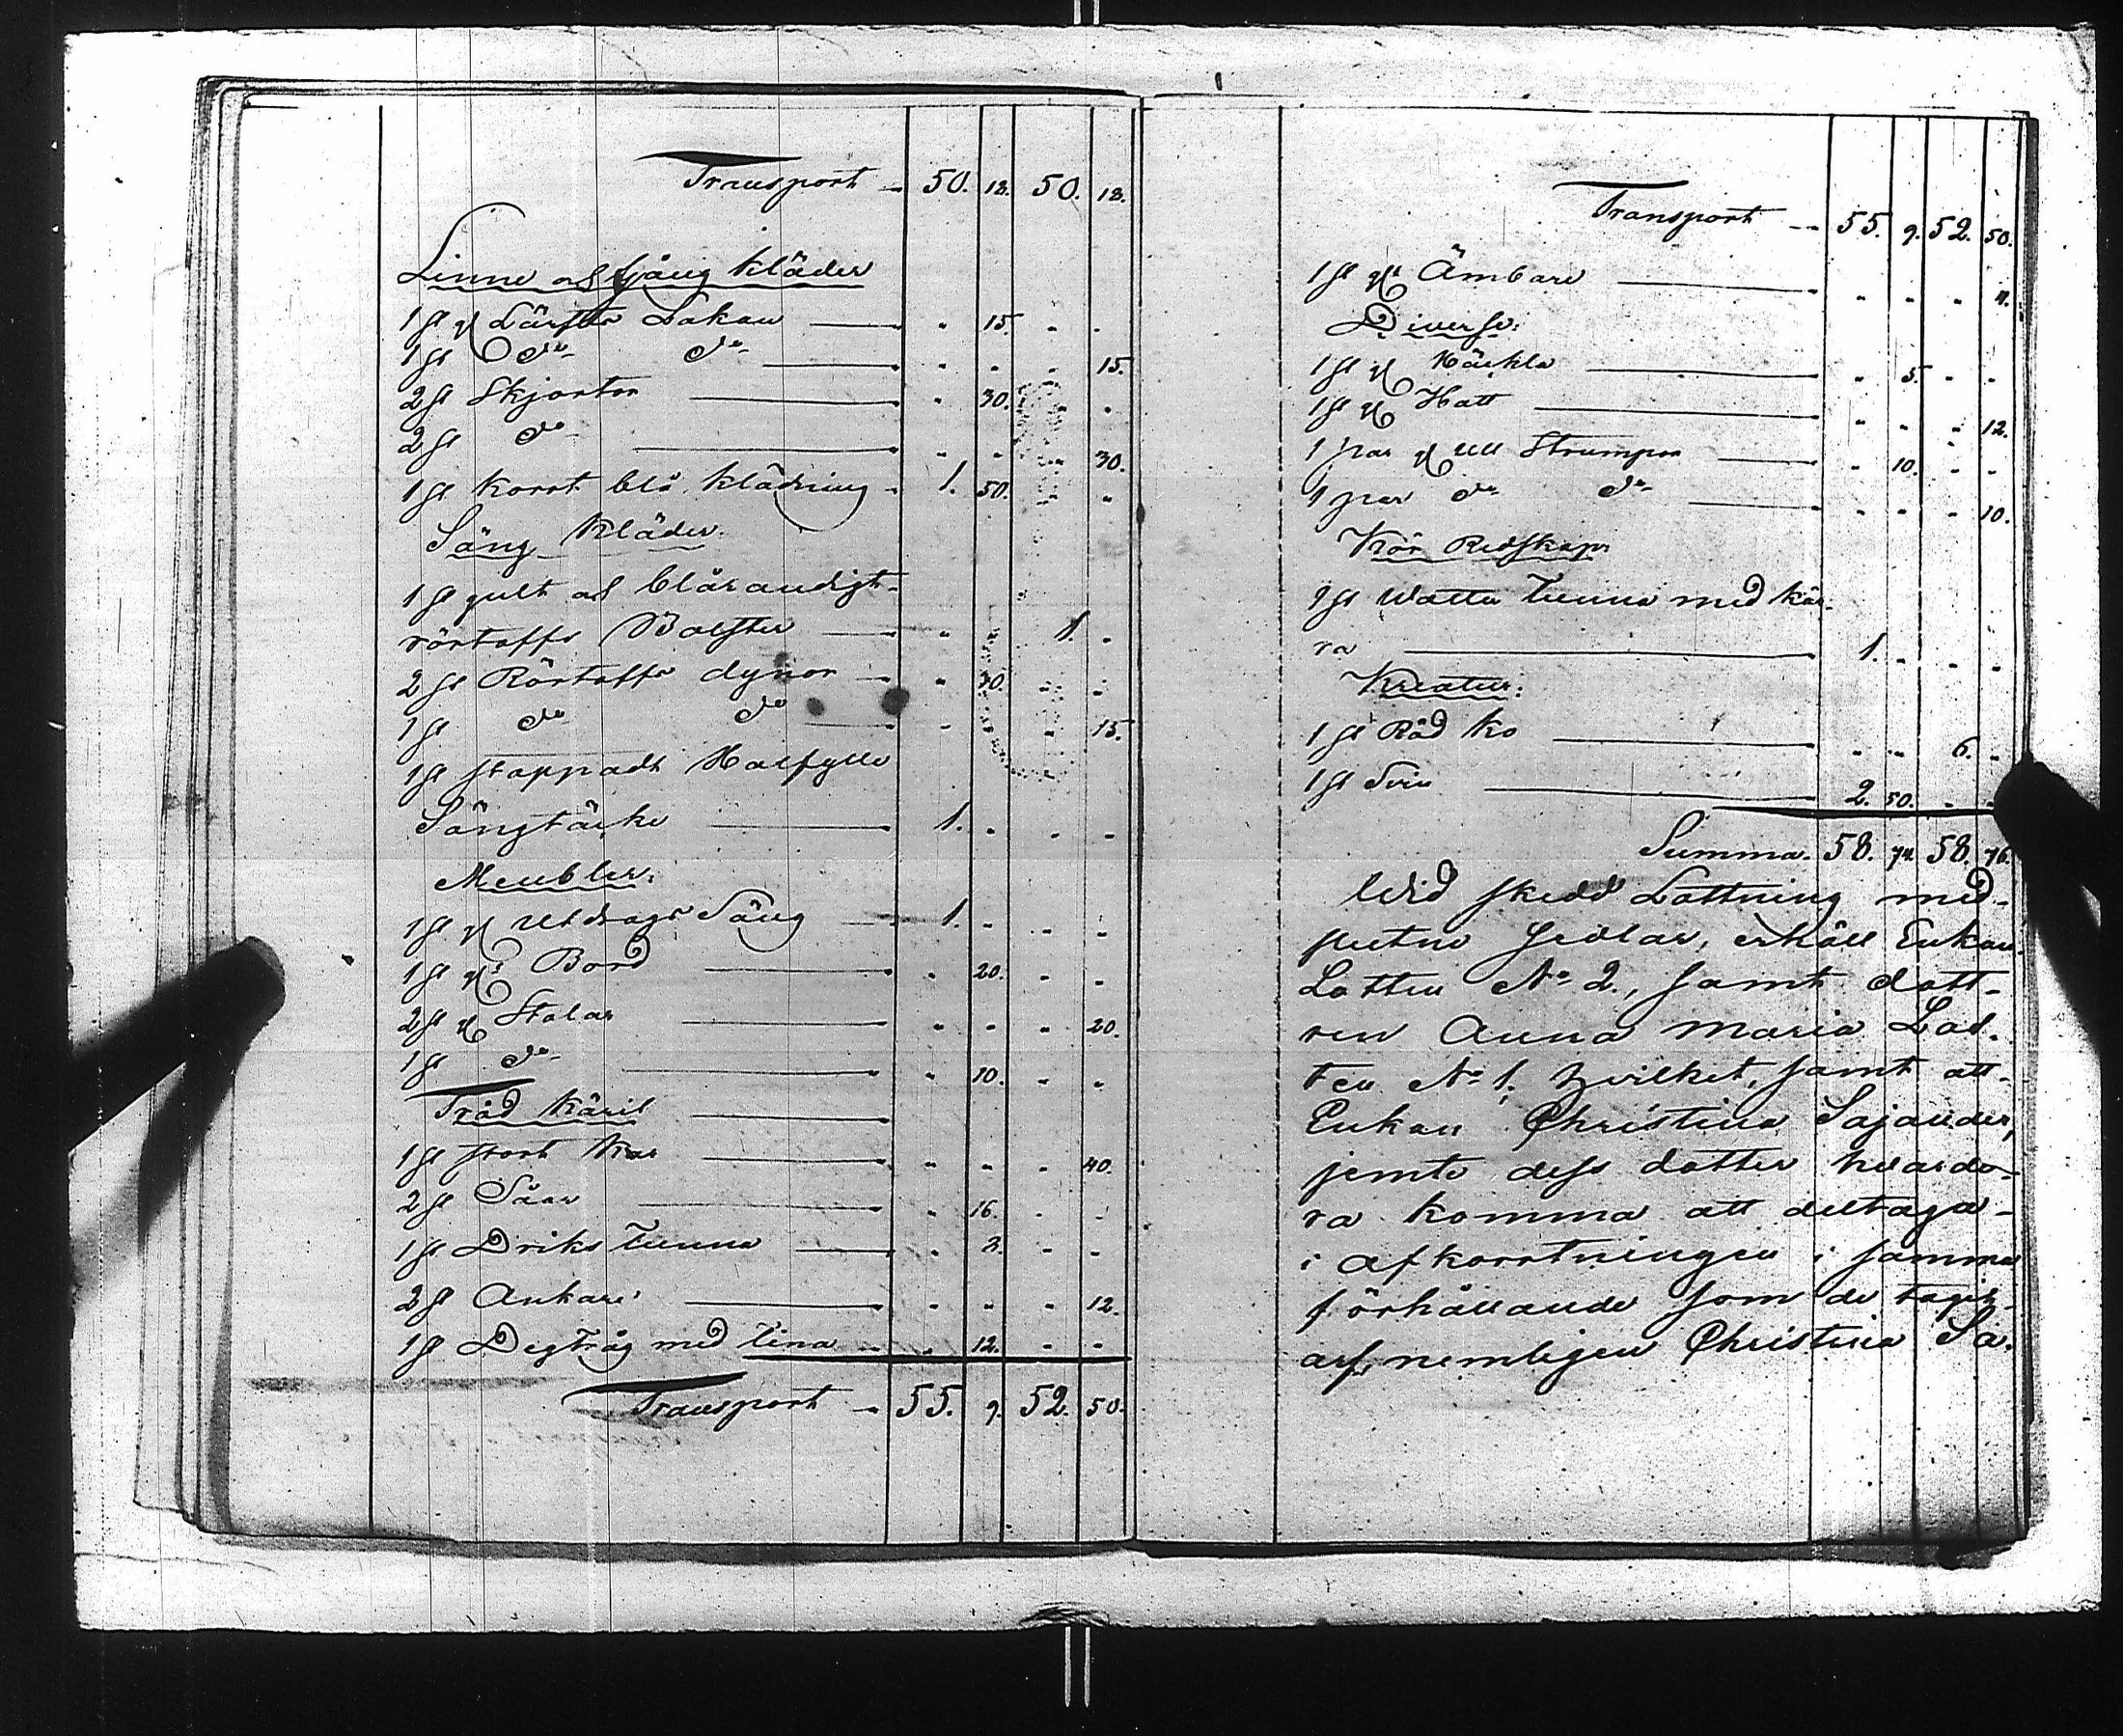 Transport — 50. 18. 50. 18.
Linne och Gång kläder
1 st gl Lärfts Lakan — " 15. " "
1 st do do — " " " 15.
2 st Skjortor — " 30. " "
2 st do — " " " 30.
1 st kort blå klädning 1. 50. " "
Säng kläder.
1 st gult och blårandigt
vörtoffs Bolster — " " 1. "
2 st Vörtoffs dynor — " 30. " "
1 st do do — " " " 15.
1 st stoppadt Halfylle
Sängtäcke — 1. " " "
Meubler.
1 st gl Utdrags Säng — 1. " " "
1 st gl Bord — " 20. " "
2 st gl Stolar — " " " 20.
1 st do — " 10. " "
Träd Käril
1 st stort Kar — " " " 40.
2 st Såar — " 16. " "
1 st Driks Tunna — " 3. " "
2 st Ankare — " " " 12.
1 st Degtråg med tina — " 12. " "
Transport — 55. 9. 52. 50.
Transport — 55. 9. 52. 50.
1 st gl Ämbare — " " " 4.
Diverse:
1 st gl Häckla — " 5. " "
1 st gl Hatt — " " " 12.
1 par gl ull Strumpor — " 10. " "
1 par do do — " " " 10.
Kör Redskap:
1 st Watten Tunna med kär-
ra — 1. " " "
Kreatur:
1 st Röd Ko — " " 6. "
1 st Svin — 2. 50. " "
Summa. 58. 74. 58. 76.
Wid skedd Lottning med
slutne Sedlar, erhöll Enkan
Lotten No 2., samt dott-
ren Anna Maria Lot-
ten No 1. hvilket, samt att
Enkan Christina Sajander,
jemte dess dotter hvardera
ra komma att deltaga
i afkortningen i samma
förhållande som de tagit
arf, nemligen Christina Sa-